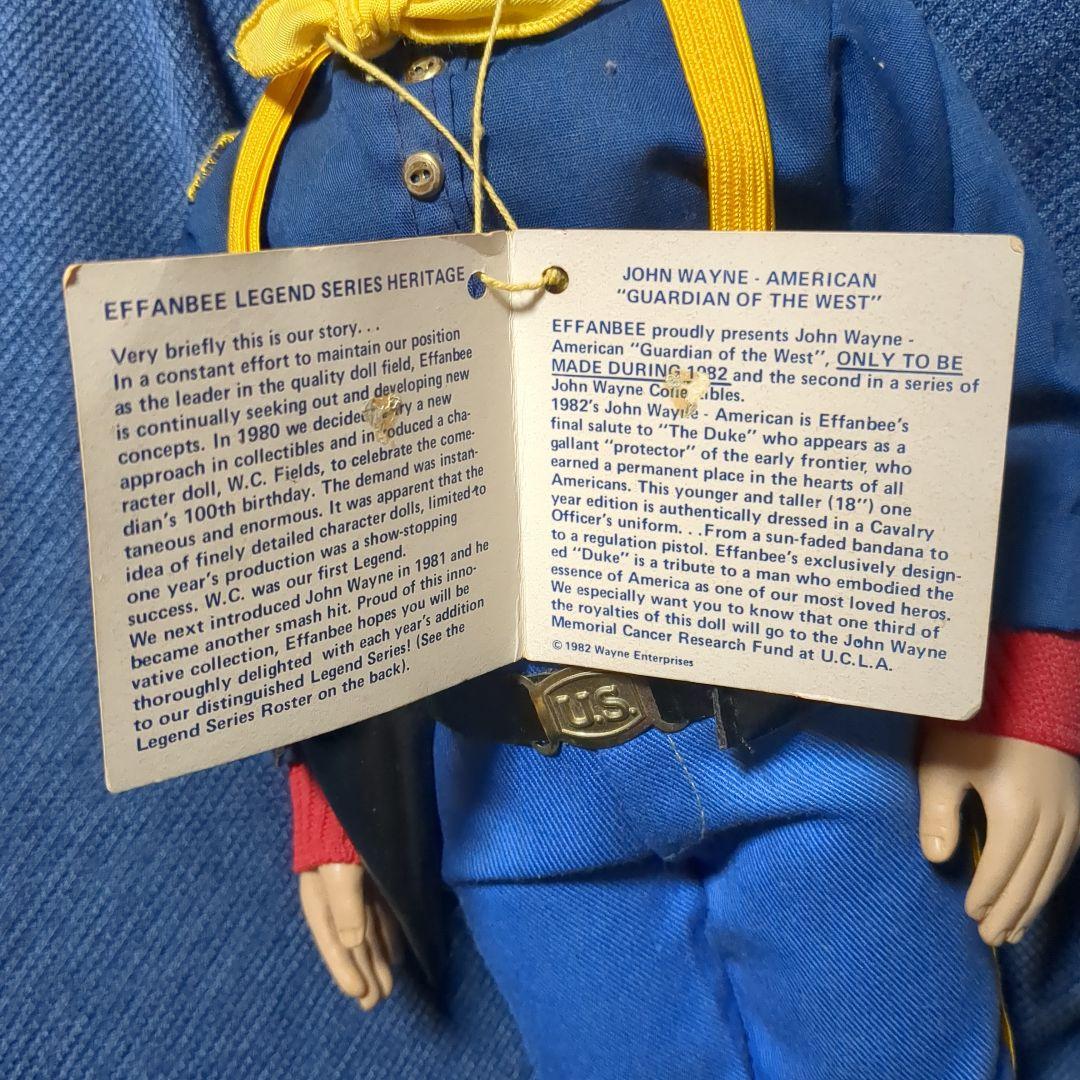 EFFANBEE LEGEND SERIES HERITAGE
Very briefly this is our story. . .
In a constant effort to maintain our position
as the leader in the quality doll field, Effanbee
is continually seeking out and developing new
concepts. In 1980 we decided a new
approach in collectibles and introduced a cha-
racter doll, W.C. Fields, to celebrate the come-
dian's 100th birthday. The demand was instan-
taneous and enormous. It was apparent that the
idea of finely detailed character dolls, limited to
one year's production was a show-stopping
success. W.C. was our first Legend.
We next introduced John Wayne in 1981 and he
became another smash hit. Proud of this inno-
vative collection, Effanbee hopes you will be
thoroughly delighted with each year's addition
to our distinguished Legend Series! (See the
Legend Series Roster on the back).
JOHN WAYNE - AMERICAN
"GUARDIAN OF THE WEST"
EFFANBEE proudly presents John Wayne -
American "Guardian of the West", ONLY TO BE
MADE DURING 1982 and the second in a series of
John Wayne
1982's John Wayne - American is Effanbee's
final salute to "The Duke" who appears as a
gallant "protector" of the early frontier, who
earned a permanent place in the hearts of all
Americans. This younger and taller (18") one
year edition is authentically dressed in a Cavalry
Officer's uniform. . .From a sun-faded bandana to
to a regulation pistol. Effanbee's exclusively design-
ed "Duke" is a tribute to a man who embodied the
essence of America as one of our most loved heros.
We especially want you to know that one third of
the royalties of this doll will go to the John Wayne
Memorial Cancer Research Fund at U.C.L.A.
© 1982 Wayne Enterprises
U.S.